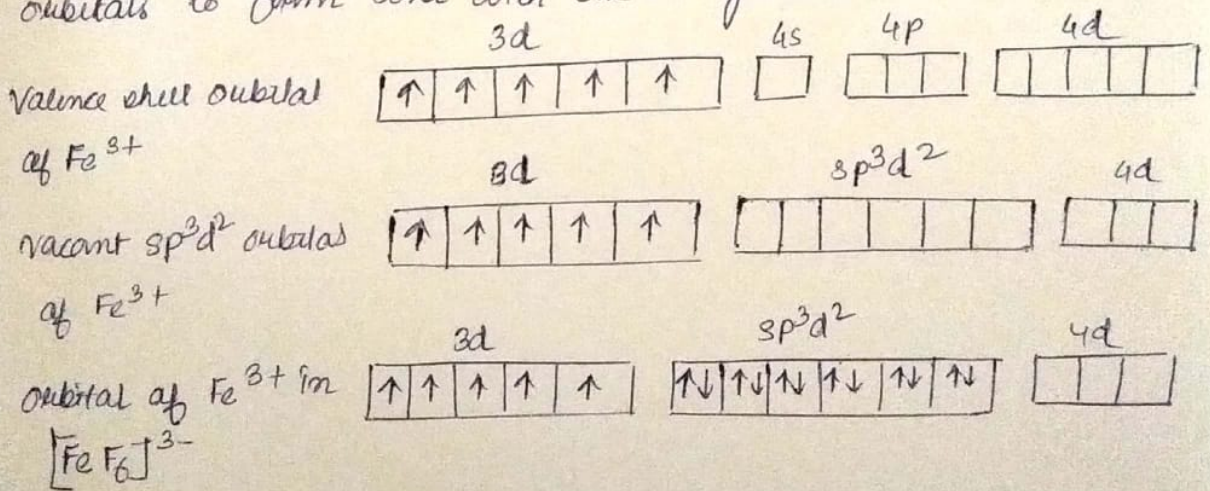 orbitals to form
3d 4s 4p 4d
Valence shell orbital
↑ ↑ ↑ ↑ ↑
of Fe 3+
3d sp3d2 4d
vacant sp3d2 orbitals
↑ ↑ ↑ ↑ ↑
of Fe3+
3d sp3d2 4d
orbital of Fe 3+ in
↑ ↑ ↑ ↑ ↑ ↑↓ ↑↓ ↑↓ ↑↓ ↑↓ ↑↓
[Fe F6]3-